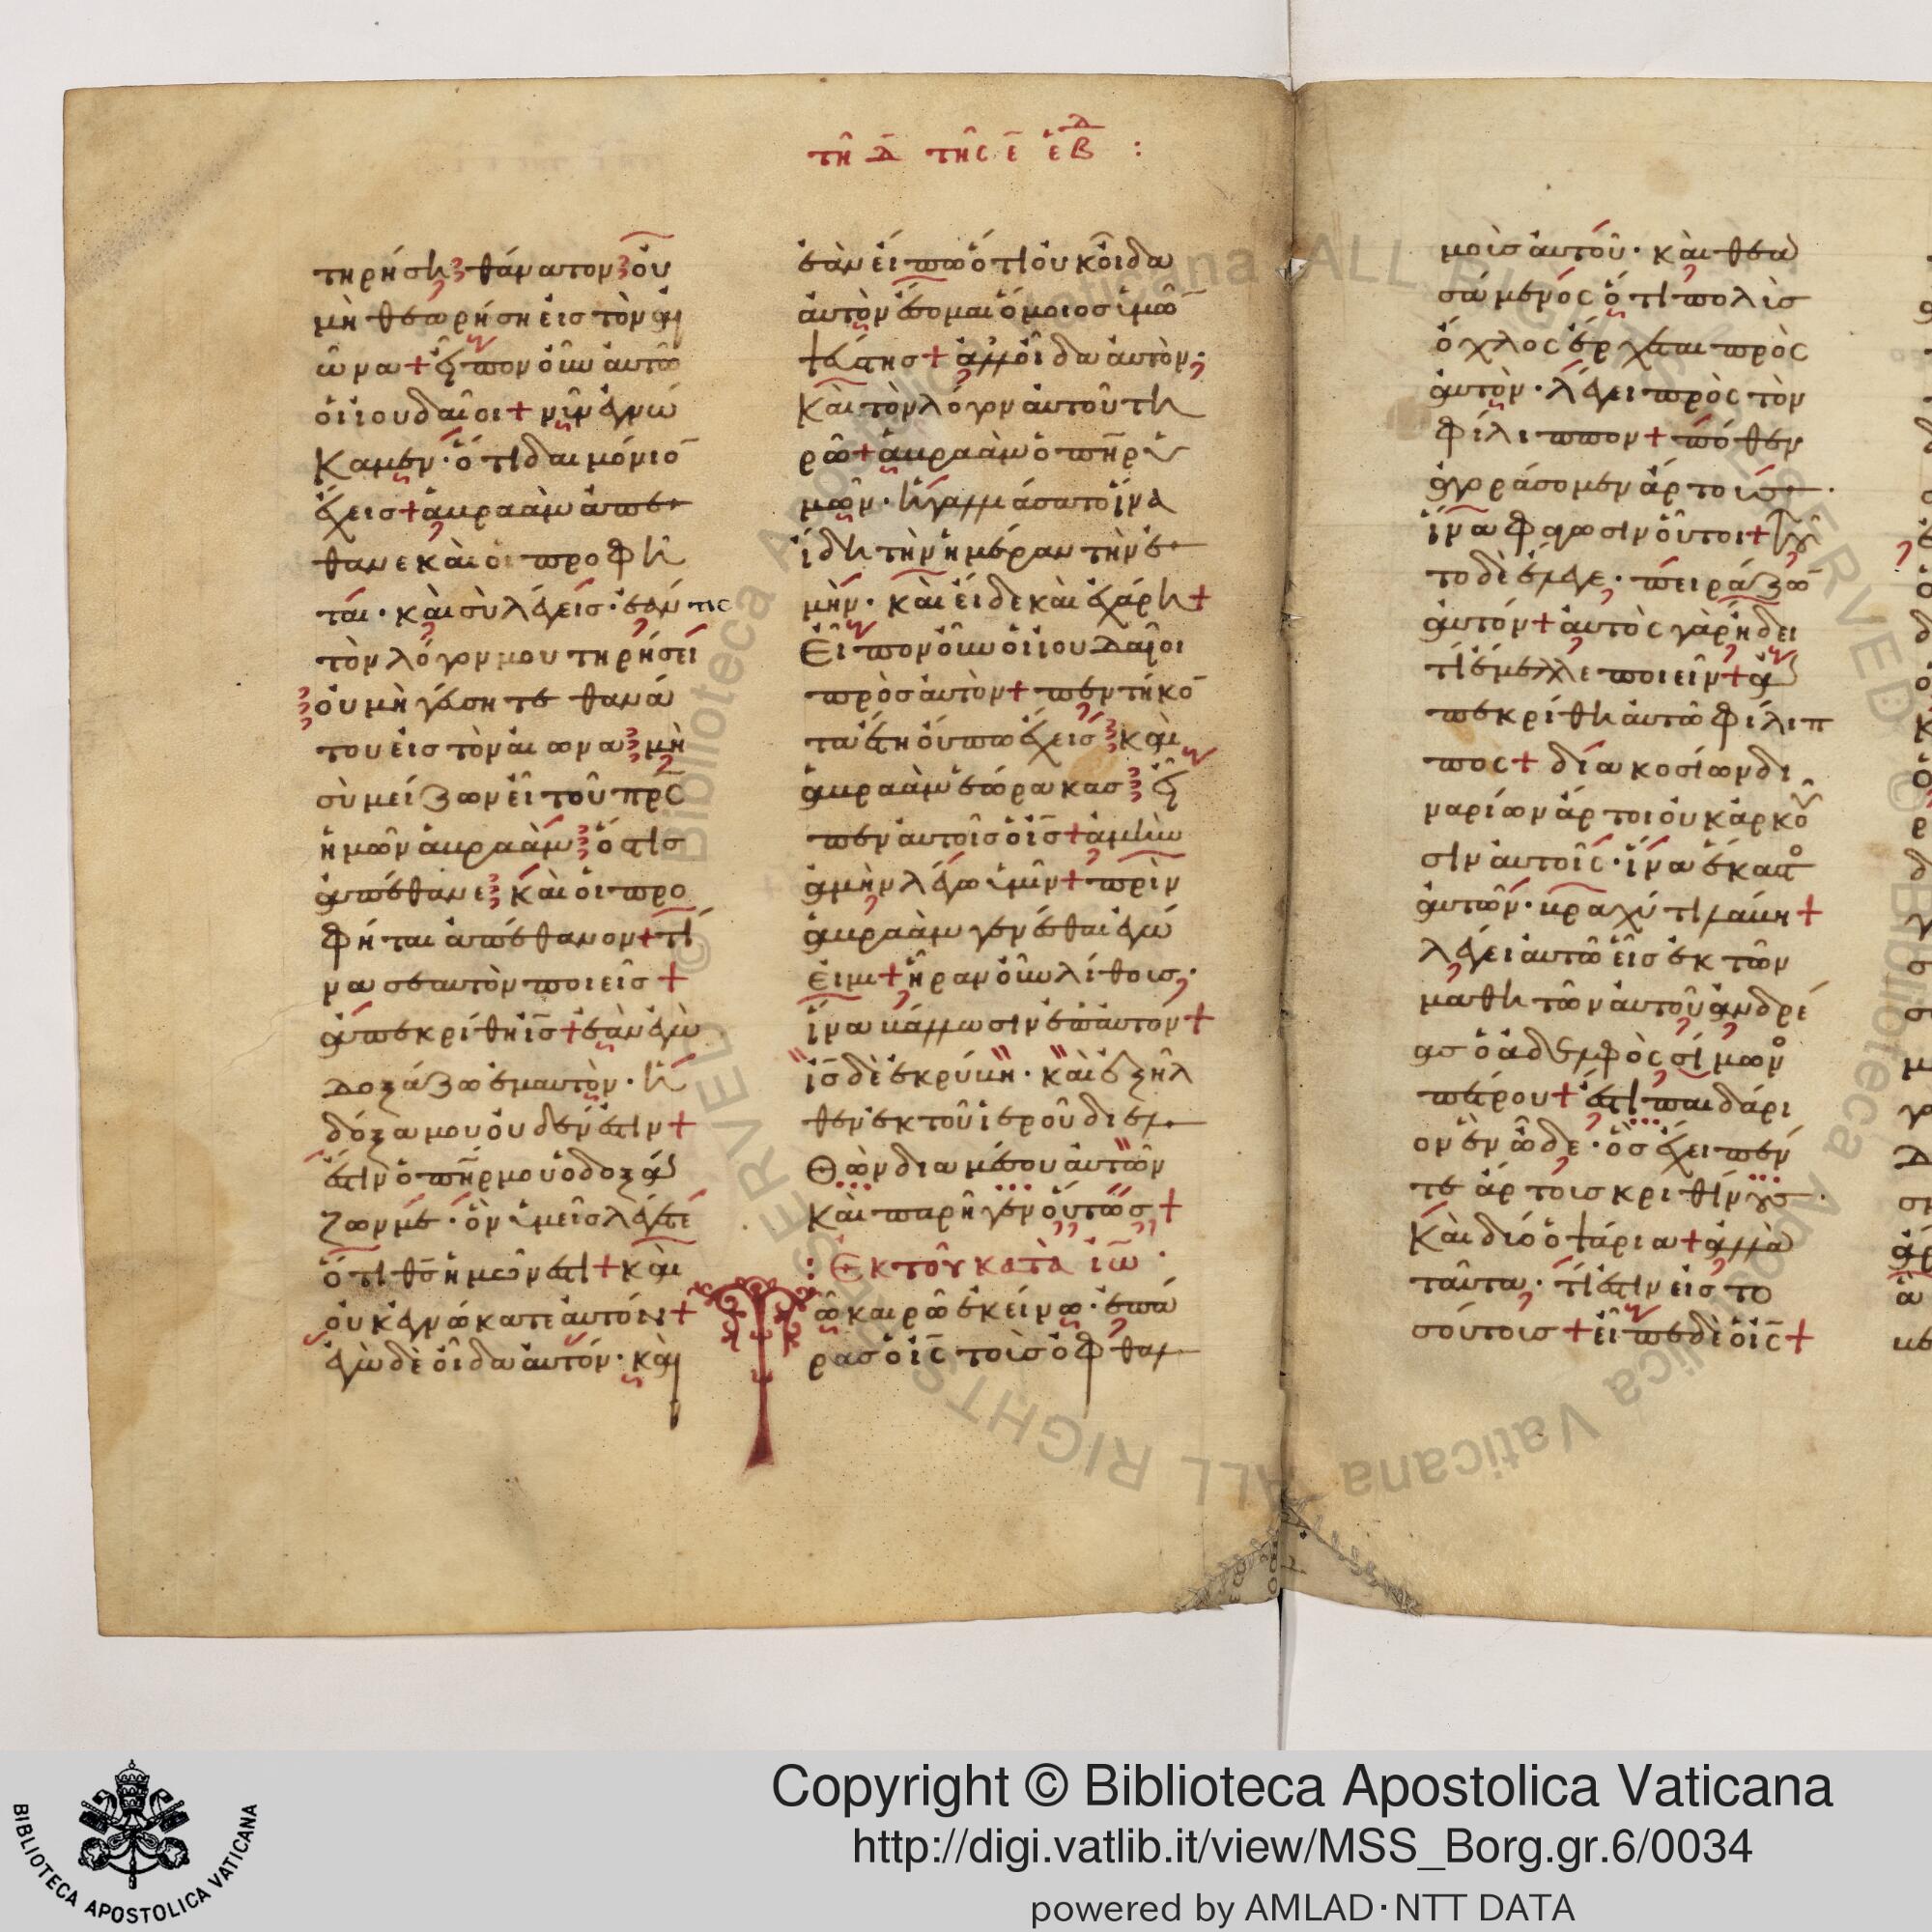 τῆ δ̄ τῆς ε̄ ἑβ̄δ :
τηρήση θάνατον οὐ
μὴ θεωρήση εἰς τὸν αἰ
ῶνα + εἶπον οὖν αὐτῶ
οἱ ἰουδαῖοι + νῦν ἐγνώ
καμεν · ὅτι δαιμόνιο̄
ἔχεις + ἀβραὰμ ἀπέ
θανε καὶ οἱ προφῆ
ται · καὶ σὺ λέγεις · ἐάν τις
τὸν λόγον μου τηρήσει
οὐ μὴ γεύσητε θανά
του εἰς τὸν αἰωνα μὴ
σὺ μείζων εἶ τοῦ πρ̄ς
ἡμῶν ἀβραὰμ ὅστις
ἀπέθανε καὶ οἱ προ
φήται ἀπέθανον + τί
να σεαυτὸν ποιεῖς +
ἀπεκρίθη ις̄ + ἐὰν ἐγὼ
δοξάζω ἐμαυτὸν · ἡ
δόξα μου οὐδεν ἐστιν +
ἔστιν ὁ πη̄ρ μου ὁ δοξά
ζων με · ὃν ὑμεῖς λέγετε
ὅτι θς̄ ἡμῶν ἐστι + καὶ
οὐκ ἐγνώκατε αὐτόν +
ἐγὼ δὲ οἶδα αὐτόν · καὶ
ἐὰν εἴπω ὅτι οὐκ οἶδα
αὐτὸν ἔσομαι ὅμοιος ὑμῶ̄
ψεύστης + ἀλλ' οἶδα αὐτὸν ·
καὶ τὸν λόγον αὐτοῦ τη
ρῶ + ἀβραὰμ ὁ πη̄ρ ὑ
μῶν · ἠγαλλιάσατο ἵνα
ἴδη τὴν ἡμέραν τὴν ἐ
μὴν · καὶ εἶδε καὶ ἐχάρη +
Εἶπον οὖν οἱ ἰουδαῖοι
πρὸς αὐτὸν + πεντήκο̄
τα ἔτη οὔπω ἔχεις καὶ
ἀβραὰμ ἑώρακας εἶ
πεν αὐτοῖς ὁ ις̄ + ἀμὴν
ἀμὴν λέγω ὑμῖν + πρὶν
ἀβραὰμ γενέσθαι ἐγώ
εἰμι + ἦραν οὖν λίθους ·
ἵνα βάλλωσιν ἐπ' αὐτον +
ις̄ δὲ ἐκρύβη · καὶ ἐξῆλ
θεν ἐκ τοῦ ἱεροῦ διελ
θὼν δια μέσου αὐτῶν
καὶ παρῆγεν οὕτως +
: Ἐκ τοῦ κατὰ ἰω̄ ·
Τῶ καιρῶ ἐκείνω · ἐπά
ρας ὁ ις̄ τοὺς ὀφθαλ
μοὺς αὐτοῦ · καὶ θεα
σάμενος ὅτι πολὺς
ὄχλος ἔρχεται πρὸς
αὐτὸν · λέγει πρὸς τὸν
φίλιππον + πόθεν
ἀγοράσομεν ἄρτους ·
ἵνα φάγωσιν οὗτοι + τοῦ
το δὲ ἔλεγε · πειράζω̄
αὐτόν + αὐτὸς γὰρ ἤδει
τί ἔμελλε ποιεῖν + ἀ
πεκρίθη αὐτῶ φίλιπ
πος + διακοσίων δη
ναρίων ἄρτοι οὐκ ἀρκοῦ
σιν αὐτοῖς · ἵνα ἕκαστο
αὐτῶν · βραχύ τι λάβη +
λέγει αὐτῶ εἷς ἐκ τῶν
μαθητῶν αὐτοῦ ἀνδρέ
ας ὁ ἀδελφὸς σίμωνο
πέτρου + ἔστι παιδάρι
ον ἓν ὧδε · ὃς ἔχει πέν
τε ἄρτους κριθίνους ·
καὶ δύο ὀψάρια + ἀλλὰ
ταῦτα · τί ἐστιν εἰς το
σούτους + εἶπε δὲ ὁ ις̄ +
BIBLIOTECA APOSTOLICA VATICANA
Copyright © Biblioteca Apostolica Vaticana
http://digi.vatlib.it/view/MSS_Borg.gr.6/0034
powered by AMLAD·NTT DATA